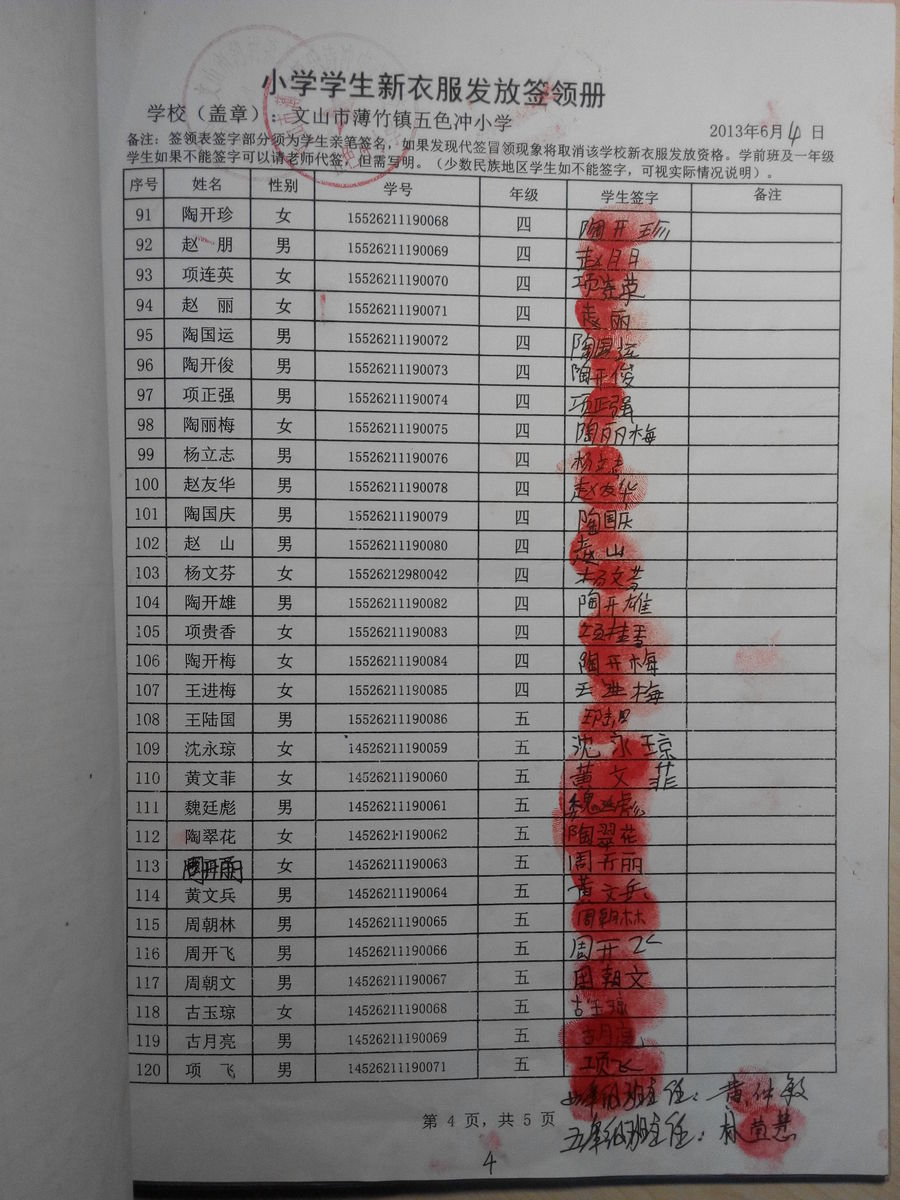 小学学生新衣服发放签领册
学校（盖章）：文山市薄竹镇五色冲小学 2013年6月4日
备注：签领表签字部分须为学生亲笔签名，如果发现代签冒领现象将取消该学校新衣服发放资格。学前班及一年级
学生如果不能签字可以请老师代签，但需写明。（少数民族地区学生如不能签字，可视实际情况说明）。
序号 姓名 性别 学号 年级 学生签字 备注
91 陶开珍 女 15526211190068 四 陶开珍
92 赵 朋 男 15526211190069 四 赵朋
93 项连英 女 15526211190070 四 项连英
94 赵 丽 女 15526211190071 四 赵丽
95 陶国运 男 15526211190072 四 陶国运
96 陶开俊 男 15526211190073 四 陶开俊
97 项正强 男 15526211190074 四 项正强
98 陶丽梅 女 15526211190075 四 陶丽梅
99 杨立志 男 15526211190076 四 杨立志
100 赵友华 男 15526211190078 四 赵友华
101 陶国庆 男 15526211190079 四 陶国庆
102 赵 山 男 15526211190080 四 赵山
103 杨文芬 女 15526212980042 四 杨文芬
104 陶开雄 男 15526211190082 四 陶开雄
105 项贵香 女 15526211190083 四 项桂香
106 陶开梅 女 15526211190084 四 陶开梅
107 王进梅 女 15526211190085 四 王进梅
108 王陆国 男 15526211190086 五 王陆国
109 沈永琼 女 14526211190059 五 沈永琼
110 黄文菲 女 14526211190060 五 黄文菲
111 魏廷彪 男 14526211190061 五 魏廷彪
112 陶翠花 女 14526211190062 五 陶翠花
113 周开丽 女 14526211190063 五 周开丽
114 黄文兵 男 14526211190064 五 黄文兵
115 周朝林 男 14526211190065 五 周朝林
116 周开飞 男 14526211190066 五 周开飞
117 周朝文 男 14526211190067 五 周朝文
118 古玉琼 女 14526211190068 五 古玉琼
119 古月亮 男 14526211190069 五 古月亮
120 项 飞 男 14526211190071 五 项飞
四年级班主任：黄仲敏
第 4 页，共 5 页
五年级班主任：林萱慧
4